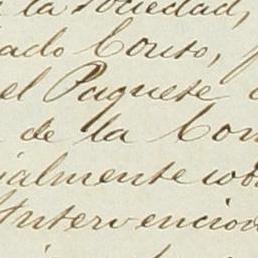 la Sociedad,
ado Couto,
el Paquete
de la Com
ialmente
Intervencion